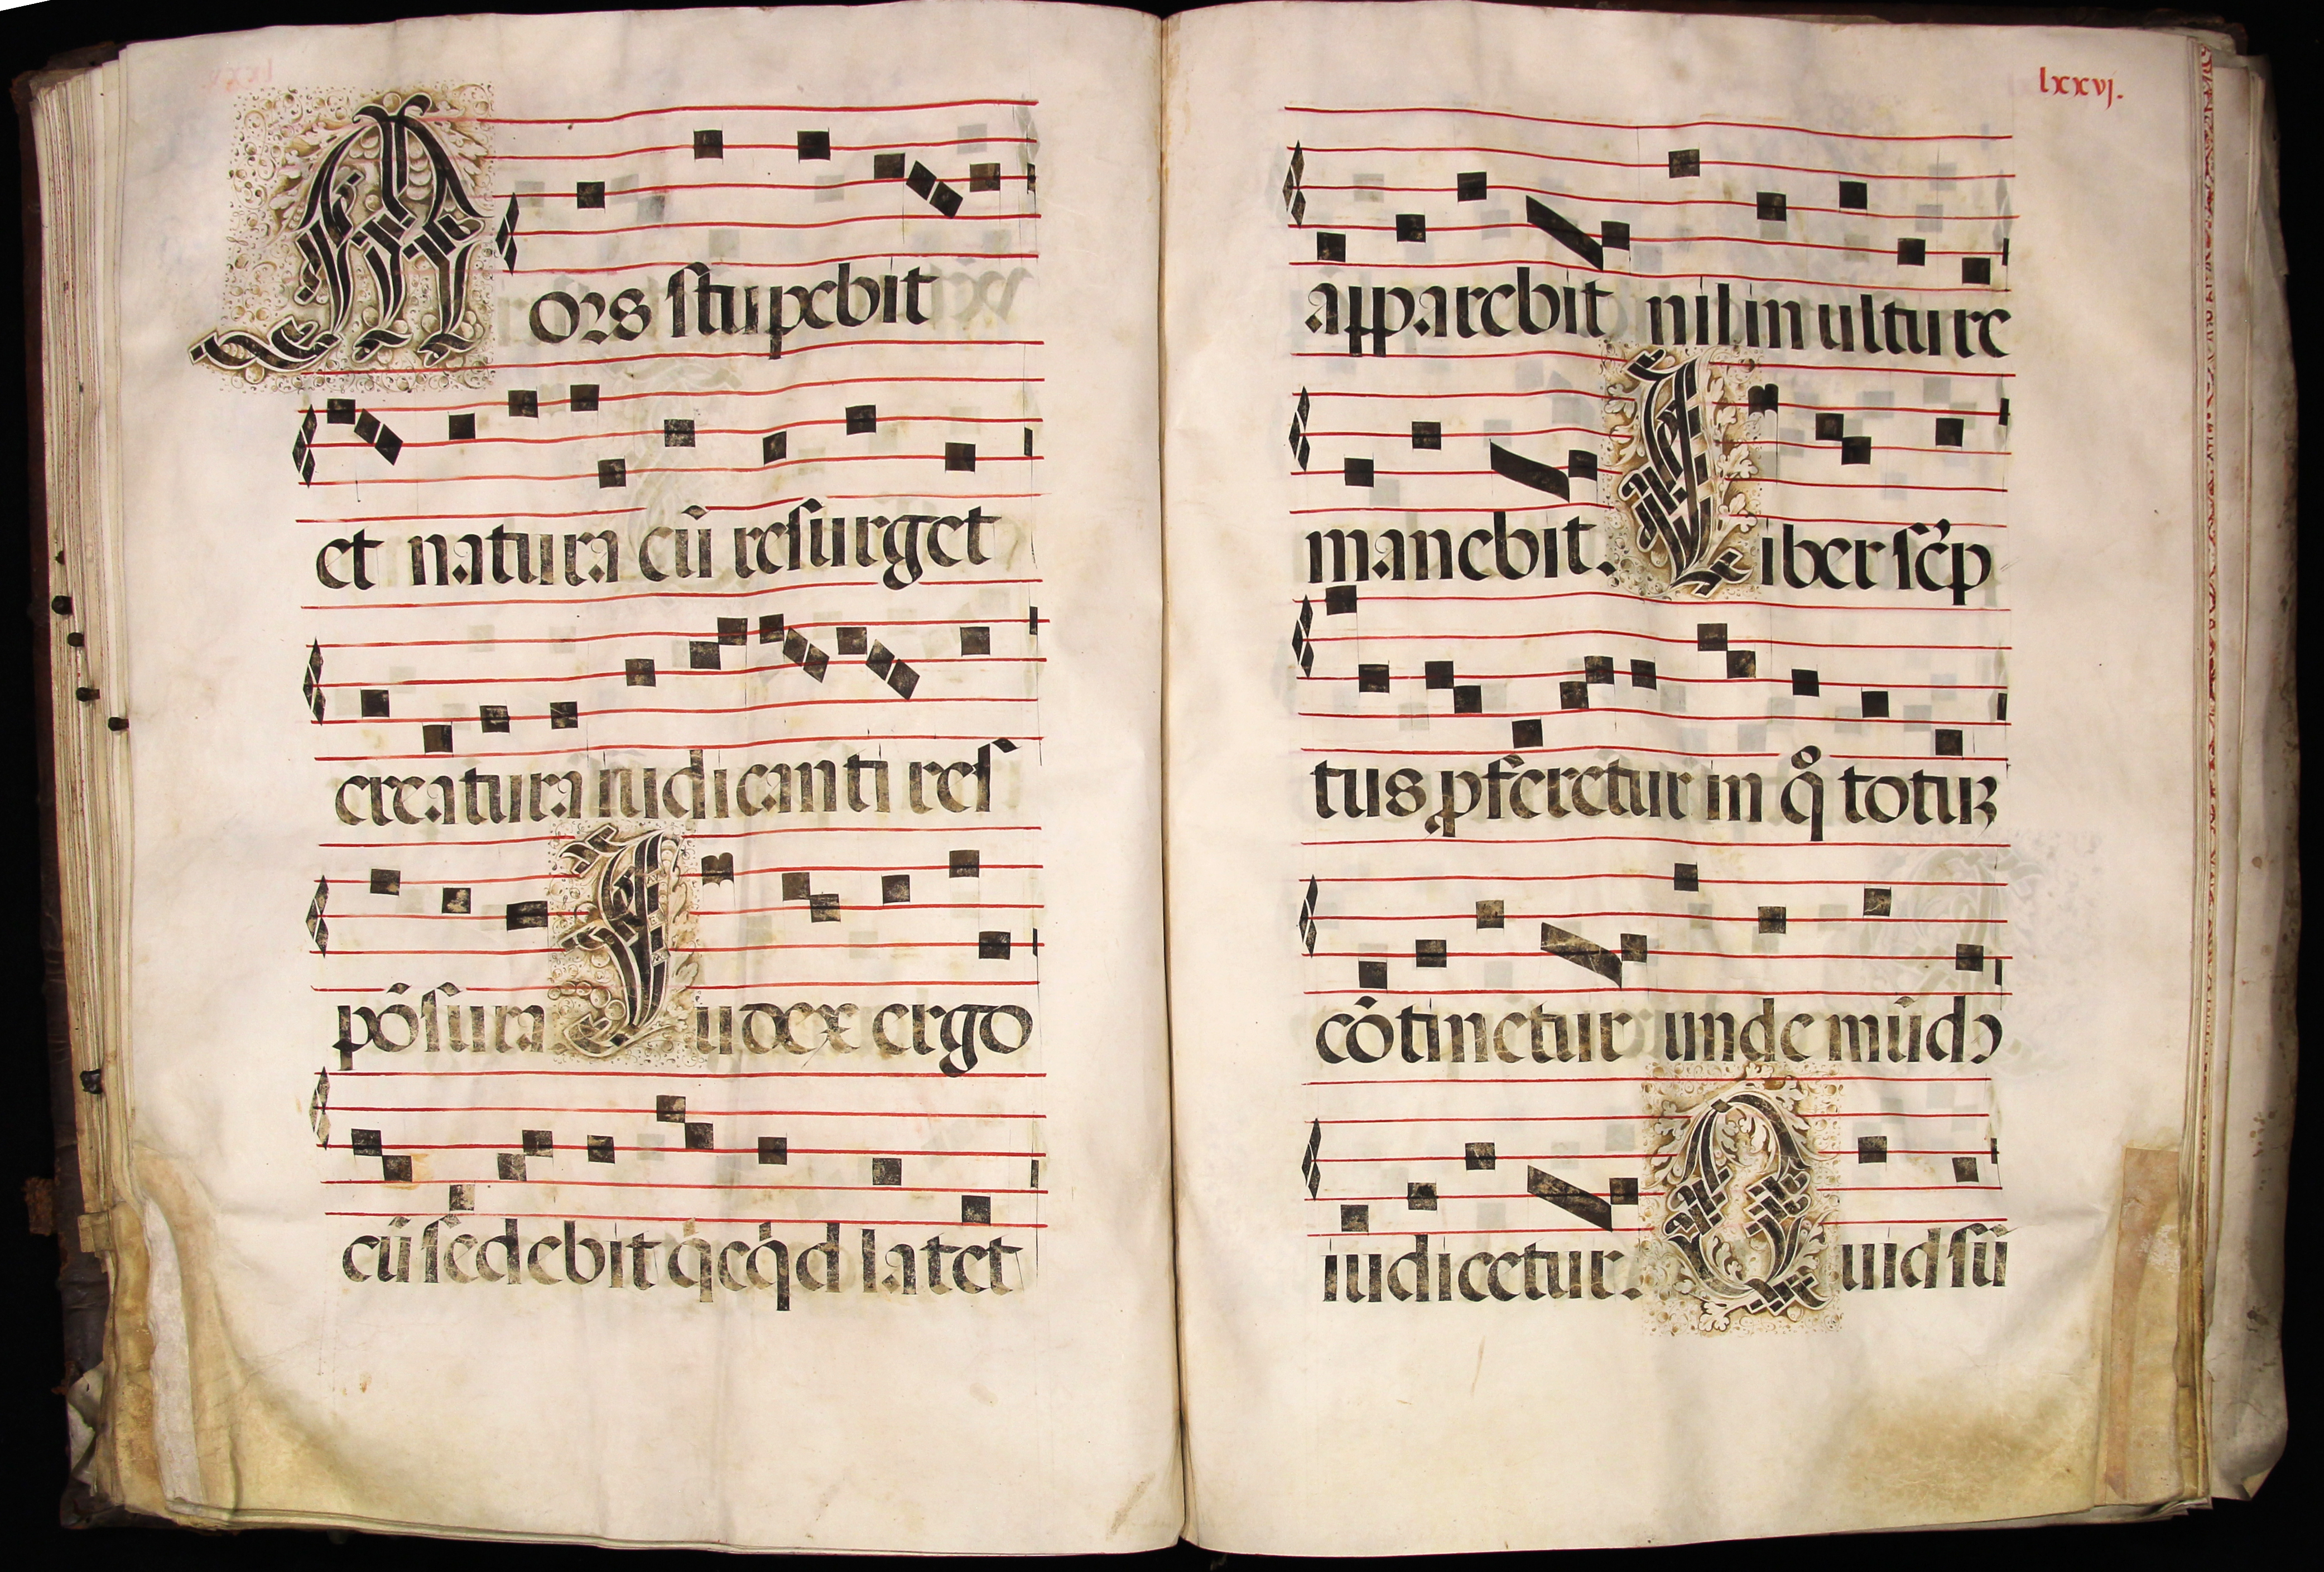 Mors stupebit
et natura cū resurget
creatura iudicanti res
pōsura. Iudex ergo
cū sedebit q̇cq̇d latet
lxxvj.
apparebit nil inultu re
manebit. Liber sc̓p
tus ꝓferetur in qͦ totuꝫ
cōtinetur unde mūdꝰ
iudicetur. Quid sū